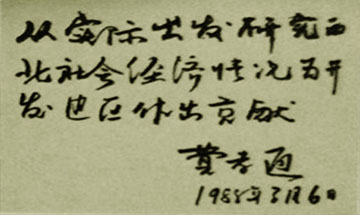 从实际出发研究西
北社会经济情况为开
发边区作出贡献
费孝通
1988年3月6日